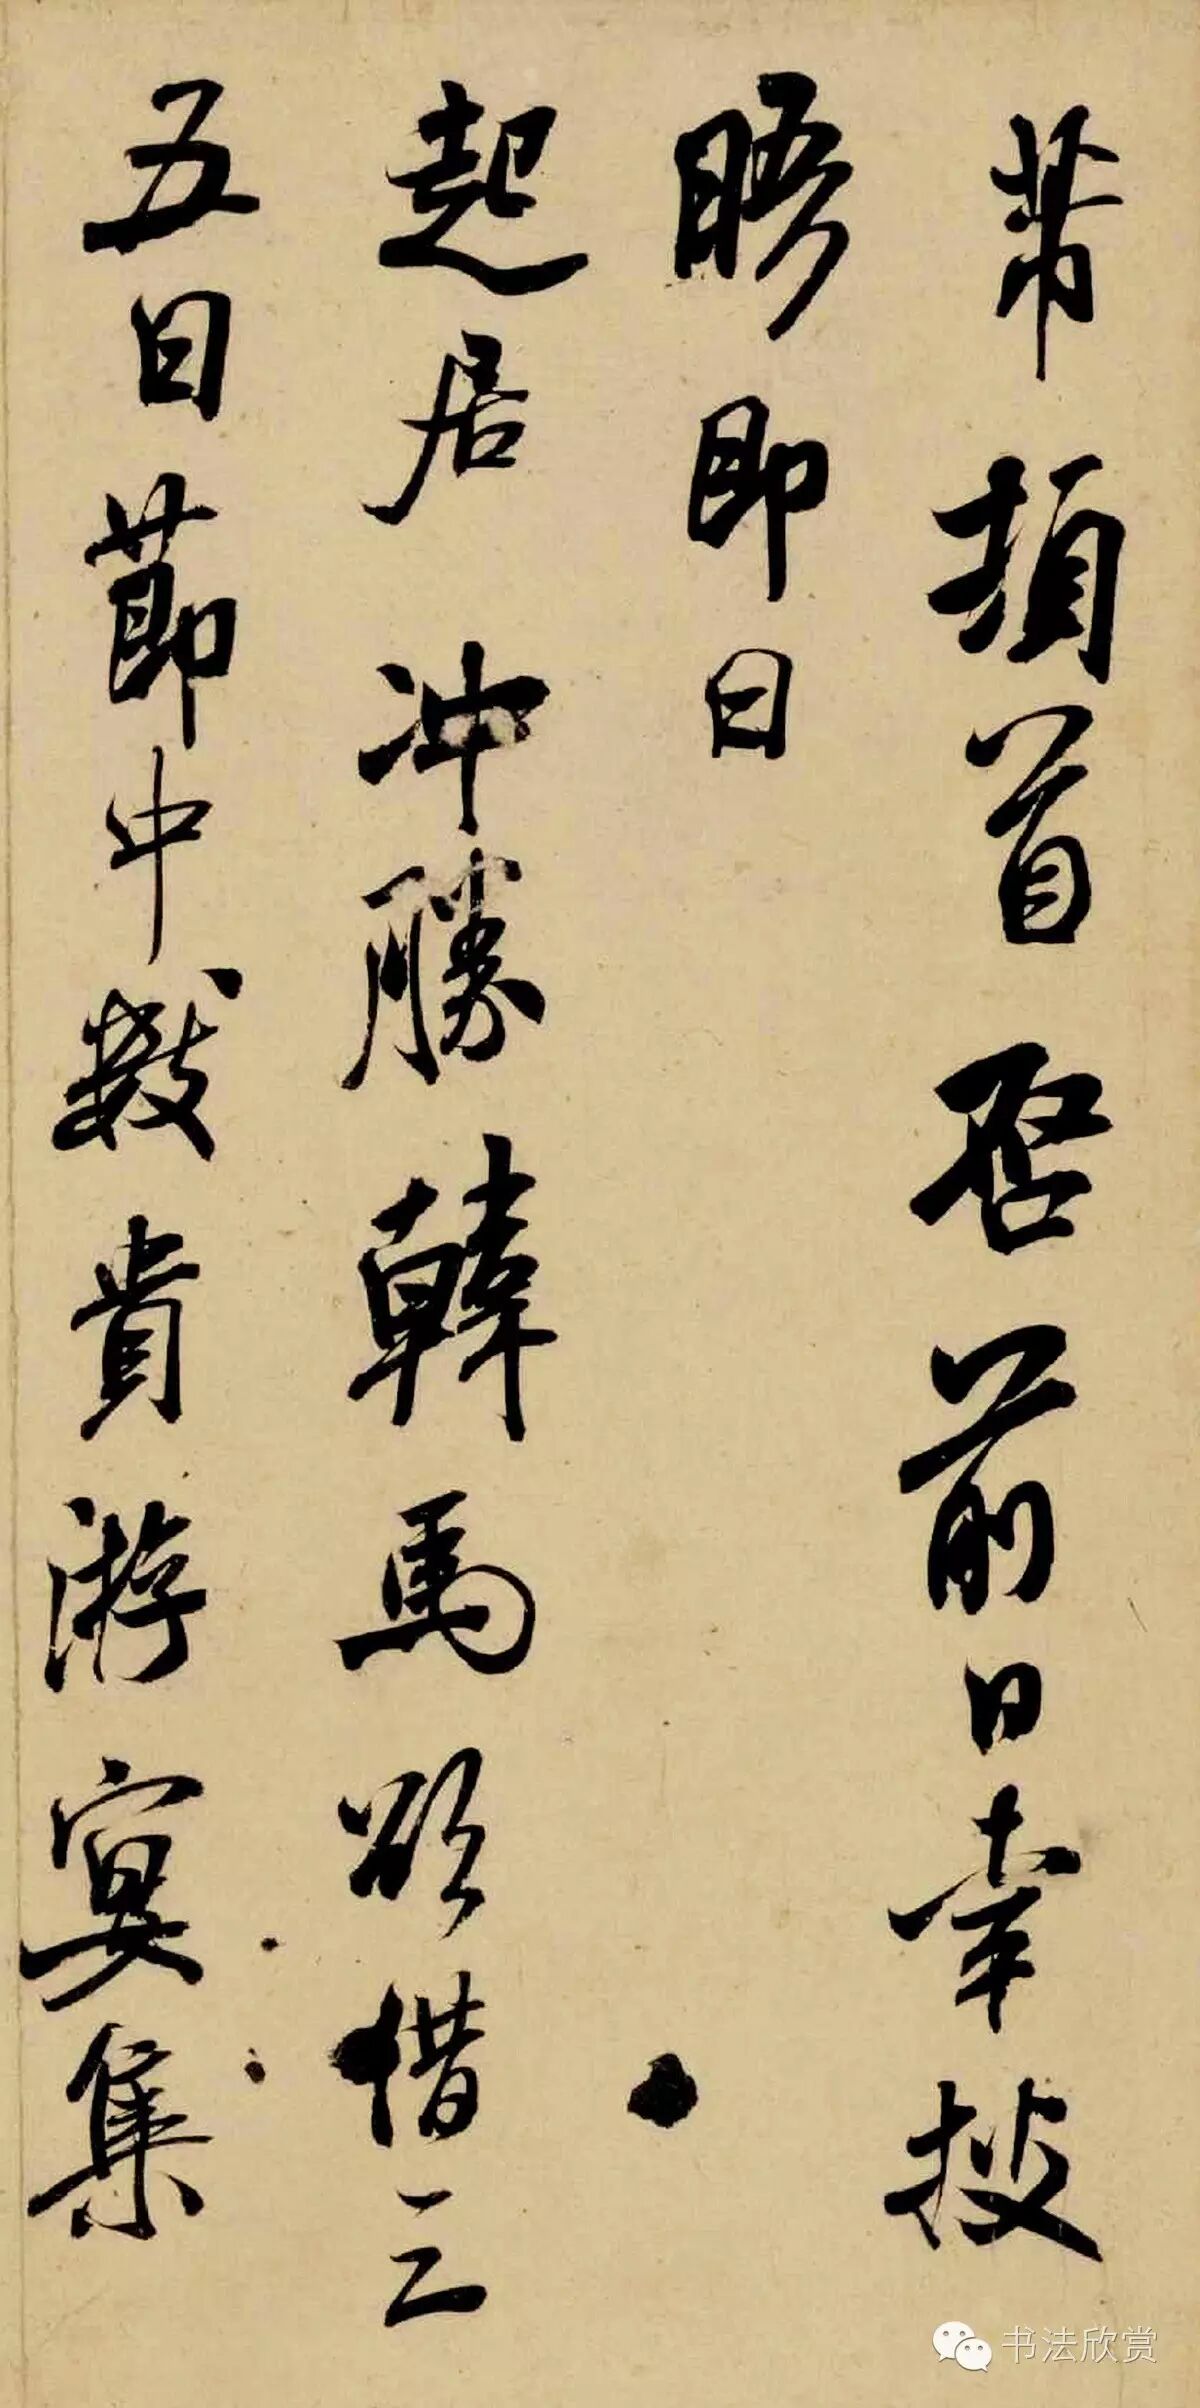 芾頓首啓前日幸披
晤即日
起居冲勝韓馬欲借三
五日節中數貴游宴集
书法欣赏